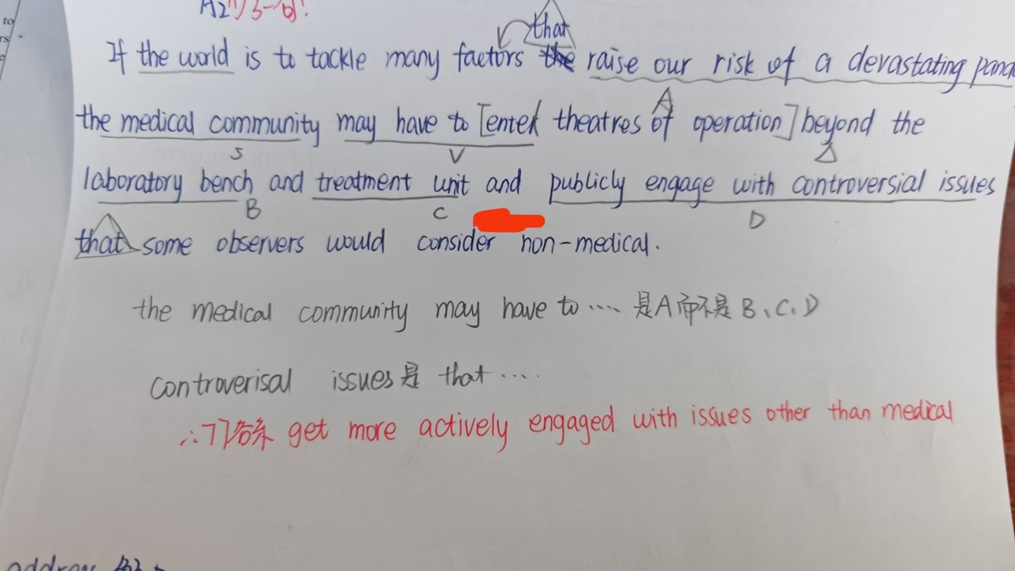 to
rs
A2的3-句!
that
If the world is to tackle many factors the raise our risk of a devastating
the medical community may have to [enter theatres of operation] beyond the
A
S V
laboratory bench and treatment unit and publicly engage with controversial issues
B C D
that some observers would consider non-medical.
the medical community may have to .... 是A而不是B、C、D
controverisal issues是 that ....
get more actively engaged with issues other than medical
address